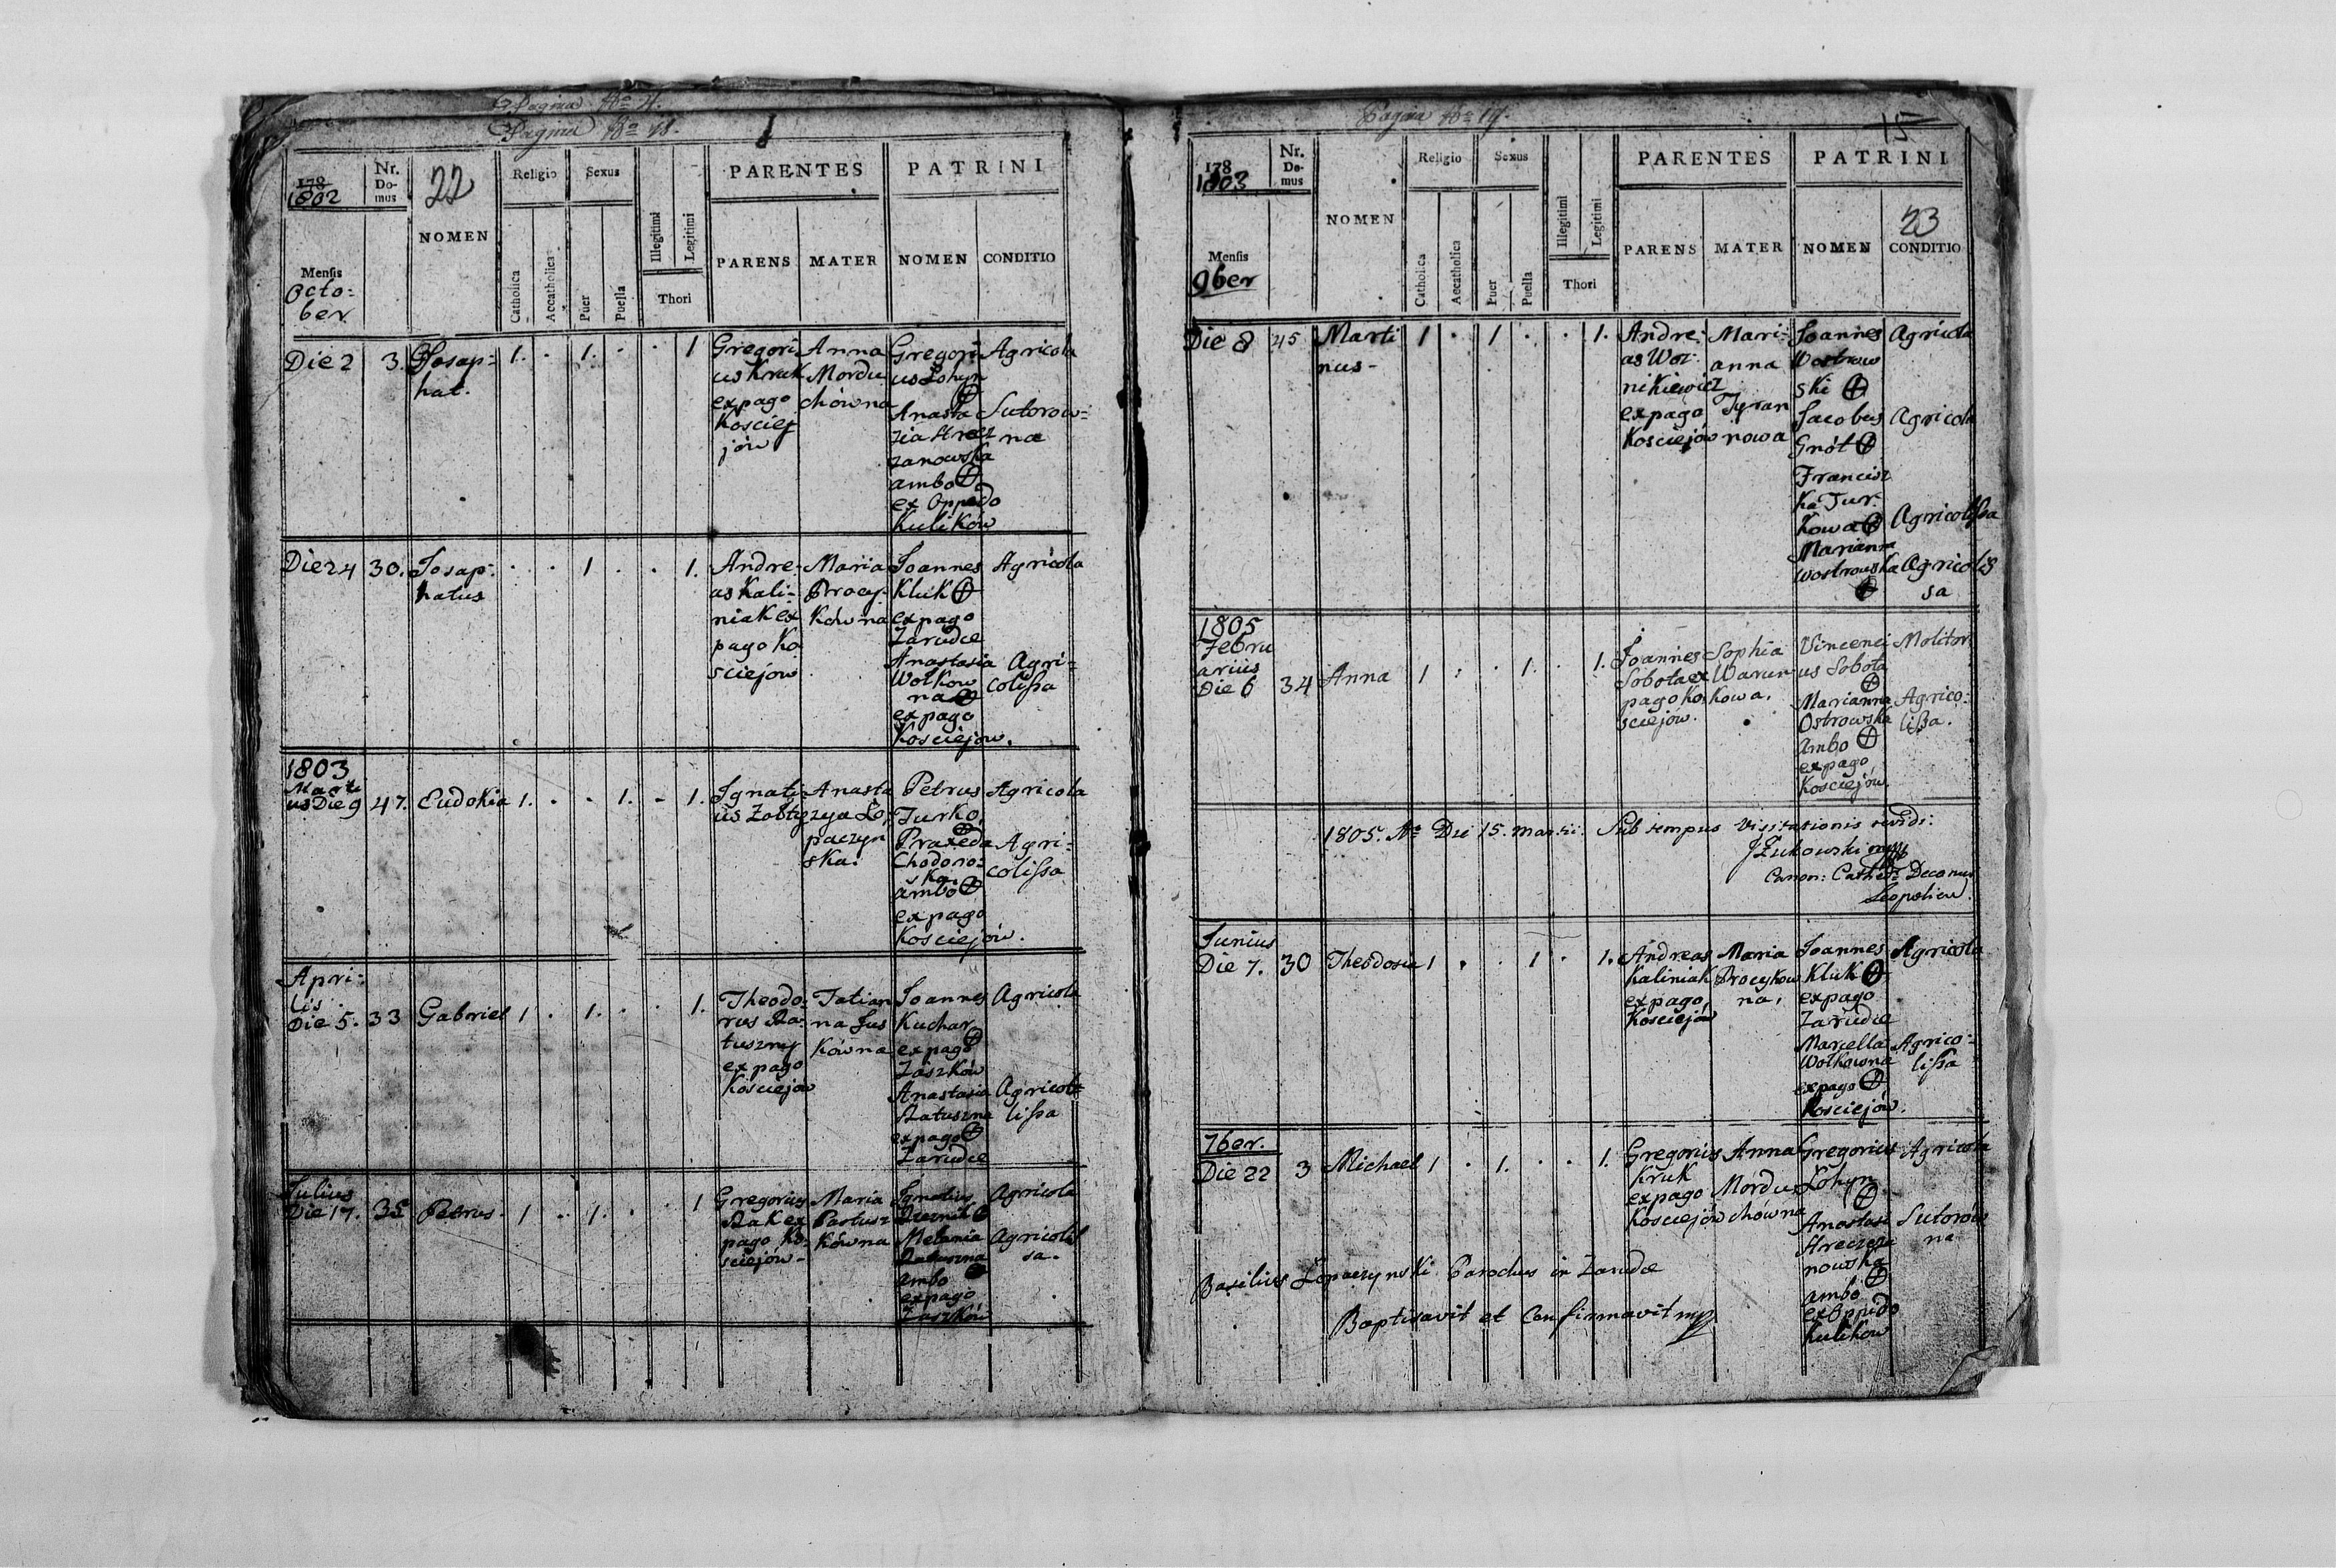 Pagina No 4.
Pagina No 18.
178
1802
Nr.
Do-
mus
22
NOMEN
Religio
Sexus
Catholica
Accatholica
Puer
Puella
Illegitimi
Legitimi
Thori
PARENTES
PATRINI
PARENS
MATER
NOMEN
CONDITIO
Mensis
Octo-
ber
Die 2 3. Josap-
hat. 1. . 1. . . 1
Gregori-
us Kruk
ex pago
Kosciej
jów
Anna
Mordu
chówna
Gregori-
us Łohyn
Anasta
zia Hrecz
zanowska
ambo
ex Oppido
Kulików
Agricola
Sutorow-
na
Die 24 30. Josap-
hatus . . 1 . . 1.
Andre-
as Kali-
niak ex
pago Ko
sciejow
Maria
Procy-
kówna
Joannes
Kluk
ex pago
Zarudce
Anastasia
Wołkow
na
ex pago
Kosciejow.
Agricola
Agri-
colissa
1803
Marti
us Die 9 47. Eudokia 1. . . 1. . 1.
Ignati-
us Żołty
Anasta
zya Ło
paczyn
ska.
Petrus
Turko,
Praxeda
Chodoro-
ska.
ambo
ex pago
Kosciejów.
Agricola
Agri-
colissa
Apri-
lis
Die 5. 33 Gabriel 1 . 1. . . 1.
Theodo-
rus Ra-
tuszny
ex pago
Kosciejów
Tatian
na Jus
kówna
Joannes
Kuchar
ex pago
Zaszków
Anastasia
Ratuszna
ex pago
Zarudce
Agricola
Agrico
lissa
Julius
Die 17. 35 Petrus 1 . 1. . . 1
Gregorius
Rak ex
pago Ko-
sciejów-
Maria
Partusz
kówna
Ignatius
Melania
Ratuszna
ambo
ex pago
Zaszków
Agricola
Agricolis
sa.
Pagina No 19.
15
178
1803
Nr.
Do-
mus
NOMEN
Religio
Sexus
Catholica
Accatholica
Puer
Puella
Illegitimi
Legitimi
Thori
PARENTES
PATRINI
PARENS
MATER
NOMEN
23
CONDITIO
Mensis
9ber
Die 8 45 Marti
nus- 1 . 1 . . 1.
Andre-
as Woz-
nikiewicz
ex pago
Kosciejów
Mari-
anna
Tyran
nowa
Joannes
Wostrow
ski
Jacobus
Grót
Francisz
ka Tur-
kowa
Marianna
Wostrowska
Agricola
Agricola
Agricolissa
Agricolis
sa
1805
Febru
arius
Die 6 34 Anna 1 . . 1. . 1.
Joannes
Sobota ex
pago Ko
sciejów.
Sophia
Warun
kowa.
Vincenci
us Sobota
Marianna
Ostrowska
Ambo
ex pago
Kosciejów.
Molitor
Agrico-
lissa.
1805. Ao Die 15. Martii. Sub tempus Visitationis vidi:
JŻukowski mpp
Canon: Cathed: Decanus
Leopolien.
Junius
Die 7. 30 Theodosia 1 . . 1 . 1.
Andreas
Kaliniak
ex pago,
Kosciejów
Maria
Procykow
na,
Joannes
Kluk
ex pago
Zarudce
Marcella
Wołkowna
ex pago
Kosciejów.
Agricola
Agrico-
lissa
7ber.
Die 22 3 Michael 1 . 1. . . 1.
Gregorius
Kruk
ex pago
Kosciejów
Anna
Mordu
chówna
Gregorius
Łohyn
Anastasi
Hrecza
nowska
ambo
ex Oppido
Kulikow
Agricola
Sutorow
na
Basilius Łopaczynski Parochus in Zarudce
Baptisavit et Confirmavit mpp